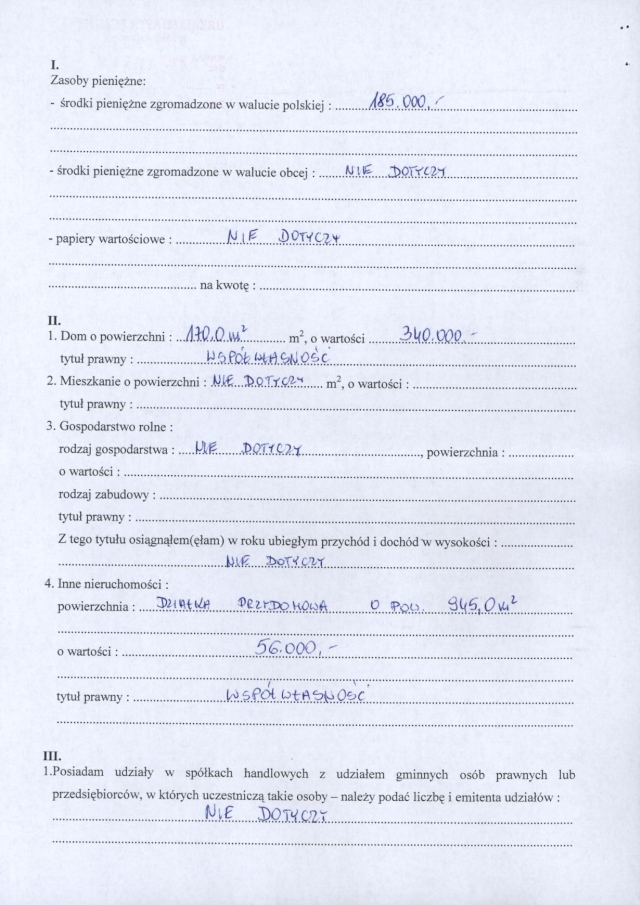 I.
Zasoby pieniężne:
- środki pieniężne zgromadzone w walucie polskiej : 185.000,-
- środki pieniężne zgromadzone w walucie obcej : NIE DOTYCZY
- papiery wartościowe : NIE DOTYCZY
na kwotę :
II.
1. Dom o powierzchni : 170,0 m² m², o wartości 340.000.-
tytuł prawny : WSPÓŁWŁASNOŚĆ
2. Mieszkanie o powierzchni : NIE DOTYCZY m², o wartości :
tytuł prawny :
3. Gospodarstwo rolne :
rodzaj gospodarstwa : NIE DOTYCZY , powierzchnia :
o wartości :
rodzaj zabudowy :
tytuł prawny :
Z tego tytułu osiągnąłem(ęłam) w roku ubiegłym przychód i dochód w wysokości :
NIE DOTYCZY
4. Inne nieruchomości :
powierzchnia : DZIAŁKA PRZYDOMOWA O POW. 945,0 m²
o wartości : 56.000,-
tytuł prawny : WSPÓŁWŁASNOŚĆ
III.
1.Posiadam udziały w spółkach handlowych z udziałem gminnych osób prawnych lub
przedsiębiorców, w których uczestniczą takie osoby – należy podać liczbę i emitenta udziałów :
NIE DOTYCZY